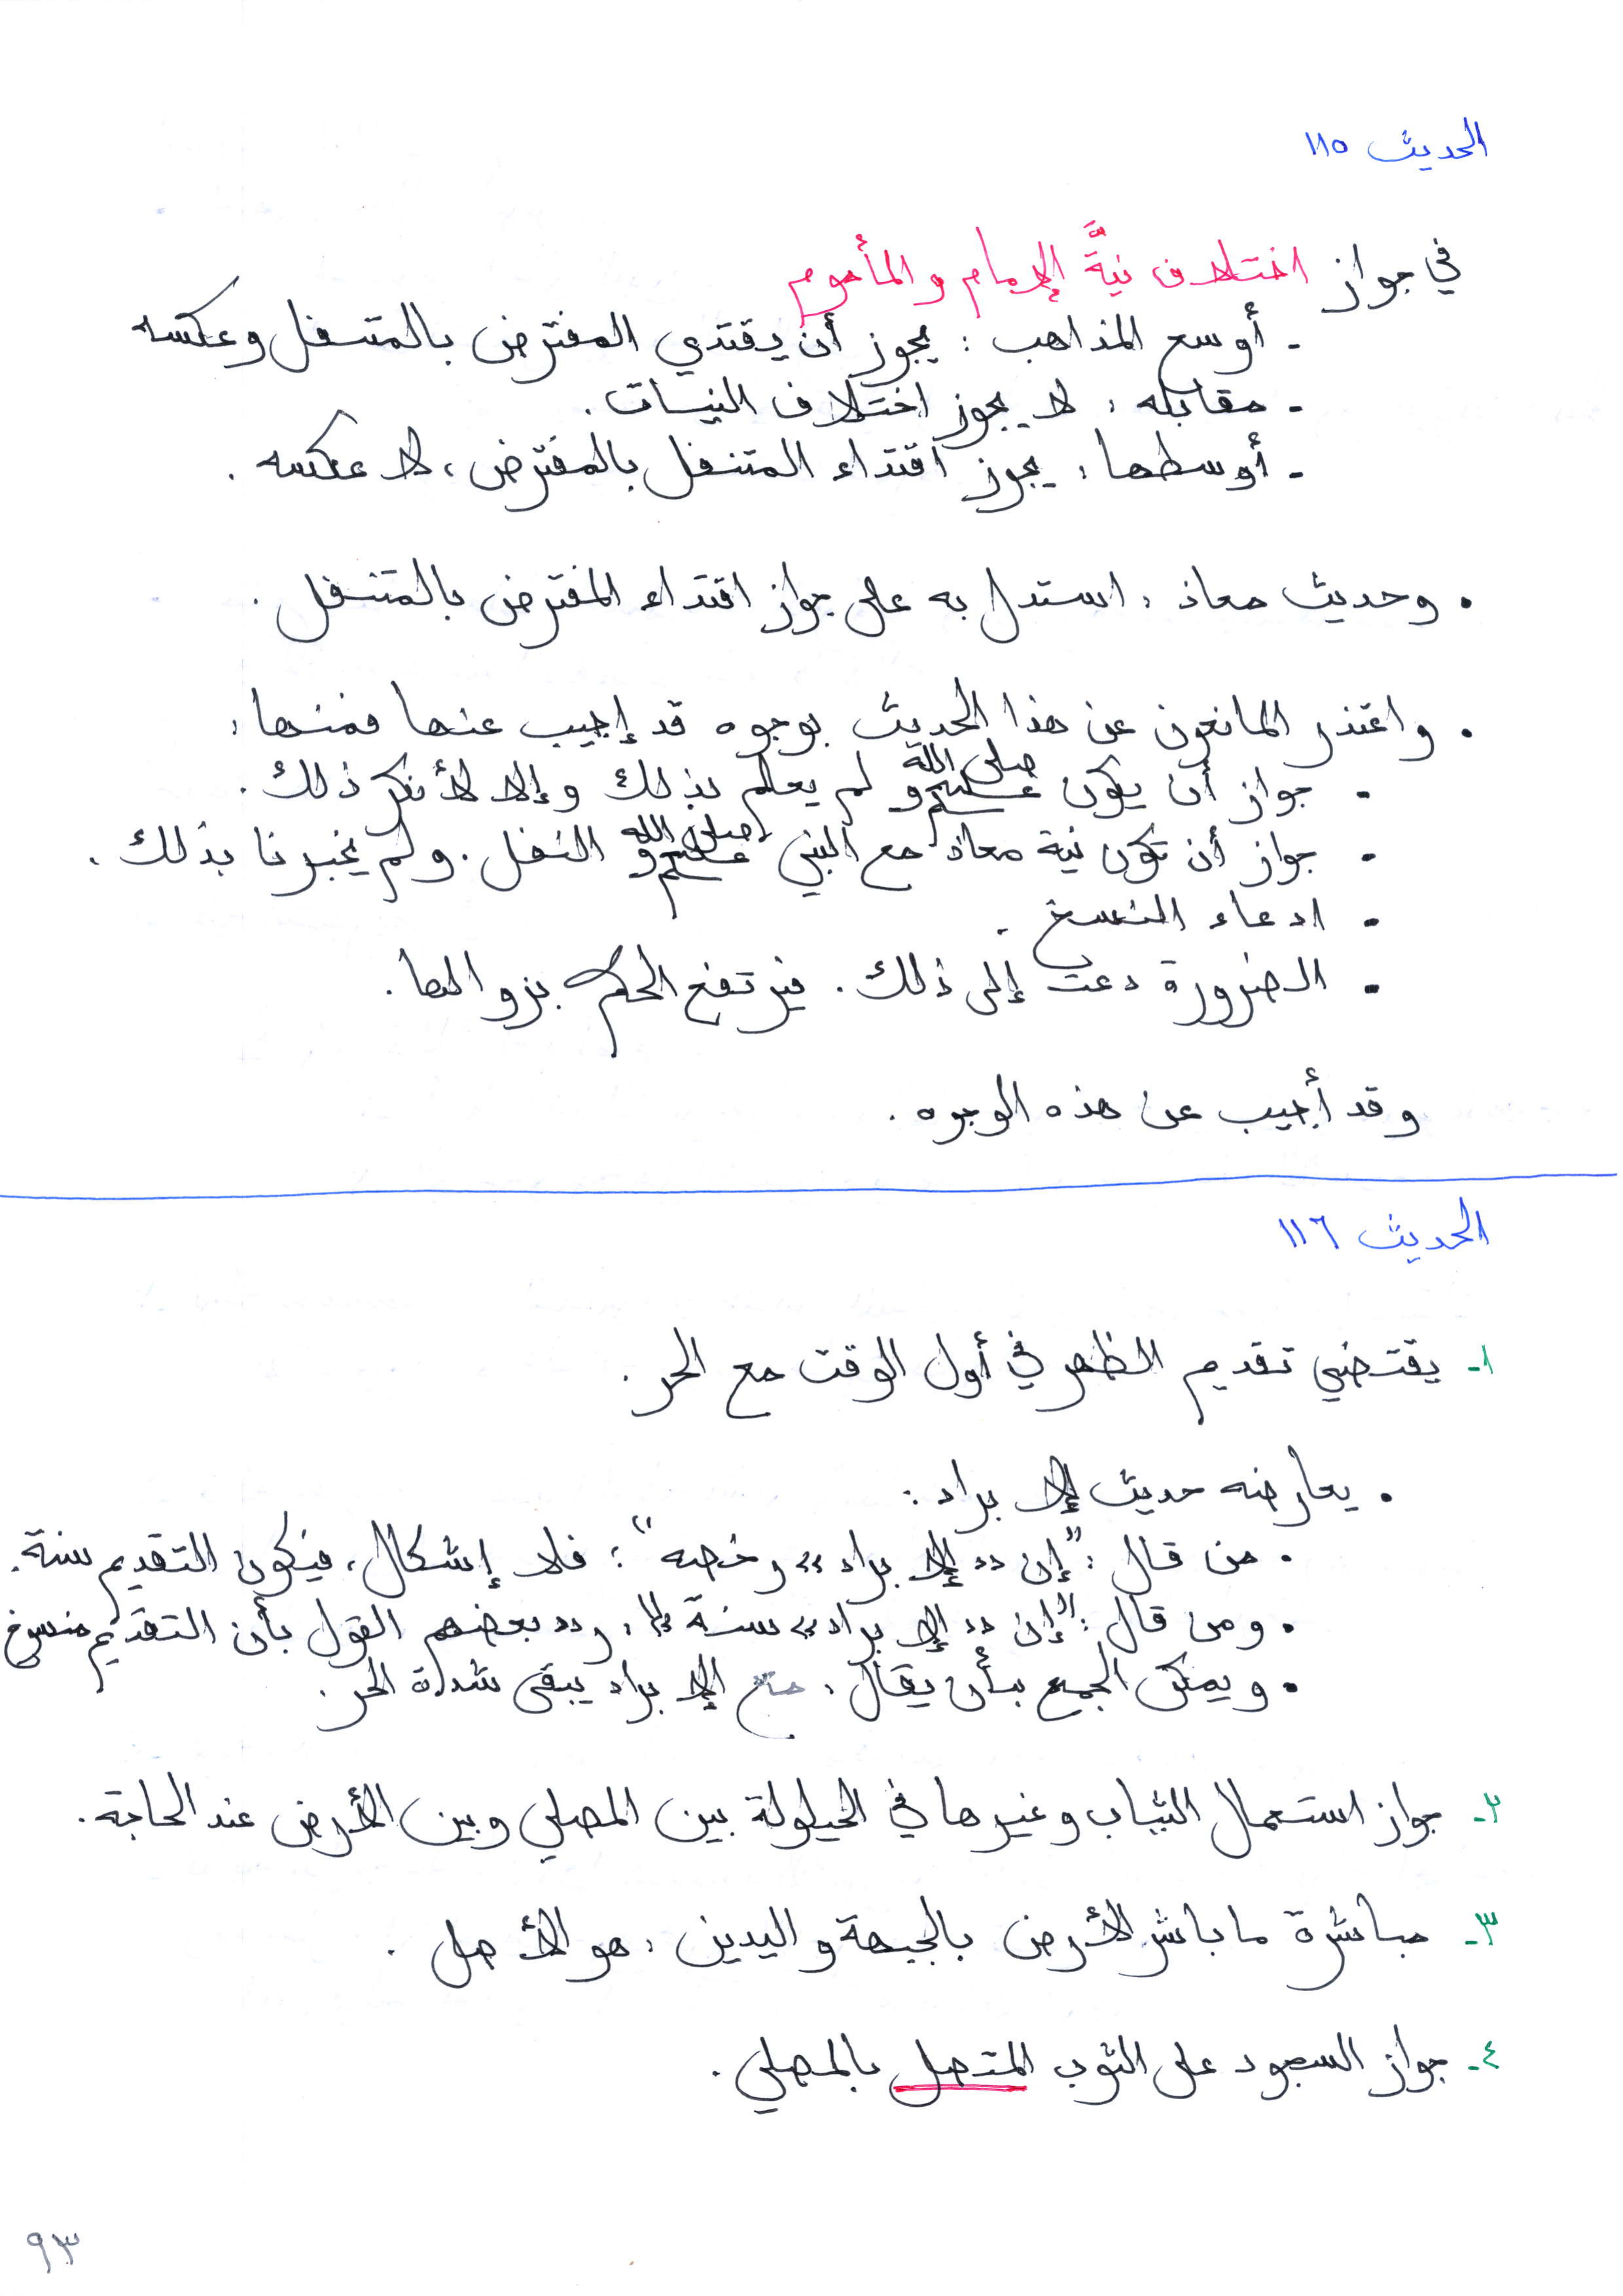 الحديث ١١٥
في جواز اختلاف نيَّة الإمام والمأموم
- أوسع المذاهب : يجوز أن يقتدي المفترض بالمتنفل وعكسه
- مقابله : لا يجوز اختلاف النيات .
- أوسطها : يجوز اقتداء المتنفل بالمفترض ، لا عكسه .
• وحديث معاذ : استدل به على جواز اقتداء المفترض بالمتنفل .
• واعتذر المانعون عن هذا الحديث بوجوه قد إجيب عنها فمنها :
- جواز أن يكون صلى الله عليه وسلم لم يعلم بذلك وإلا لأنكر ذلك .
- جواز أن تكون نية معاذ مع النبي صلى الله عليه وسلم النفل . ولم يخبرنا بذلك .
- ادعاء النسخ .
- الضرورة دعت إلى ذلك . فيرتفع الحكم بزوالها .
وقد أجيب عن هذه الوجوه .
الحديث ١١٦
١- يقتضي تقديم الظهر في أول الوقت مع الحر .
• يعارضه حديث الإبراد :
• من قال : "إن «الإبراد» رخصه" : فلا إشكال ، فيكون التقديم سنة .
• ومن قال : "إن «الإبراد» سنة" : ردد بعضهم القول بأن التقديم منسوخ
• ويمكن الجمع بأن يقال : مع الإبراد يبقى شدة الحر .
٢- جواز استعمال الثياب وغيرها في الحيلولة بين المصلي وبين الأرض عند الحاجة .
٣- مباشرة ما باشر الأرض بالجبهة واليدين : هو الأصل .
٤- جواز السجود على الثوب المتصل بالمصلي .
٩٣